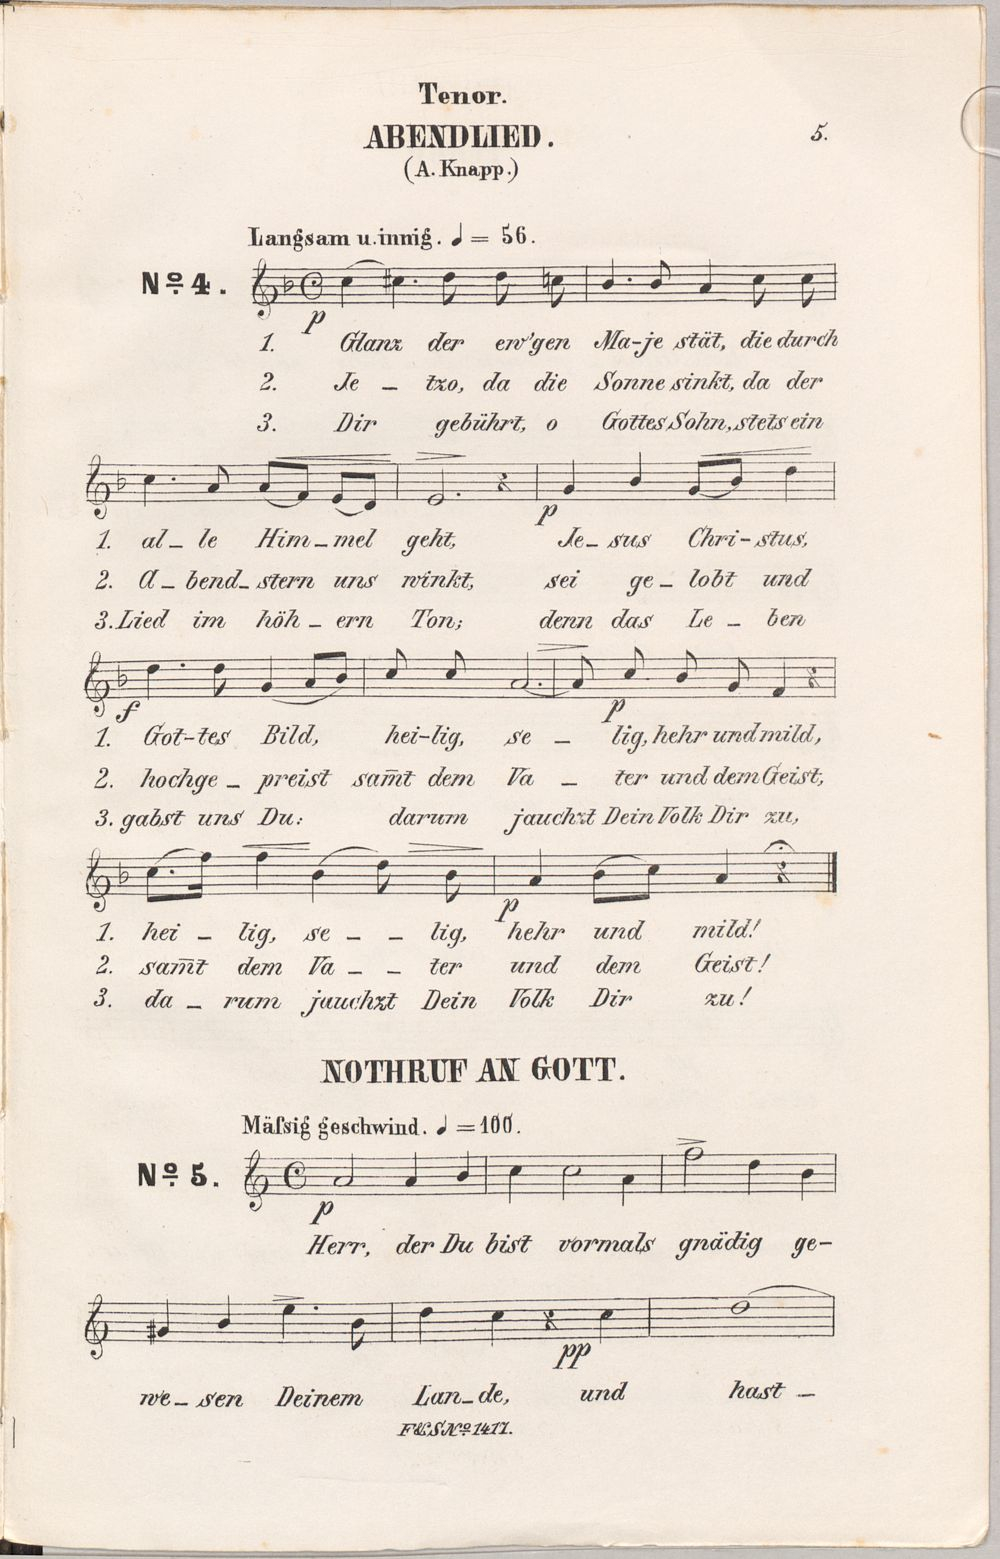 Tenor.
ABENDLIED.
5.
(A. Knapp.)
Langsam u. innig. ♩ = 56.
No. 4.
p
1. Glanz der ew'gen Ma-je stät, die durch
2. Je - tzo, da die Sonne sinkt, da der
3. Dir gebührt, o Gottes Sohn, stets ein
p
1. al - le Him - mel geht, Je - sus Chri - stus,
2. A - bend - stern uns winkt, sei ge - lobt und
3. Lied im höh - ern Ton; denn das Le - ben
f p
1. Got - tes Bild, hei - lig, se - lig, hehr und mild,
2. hochge - preist sam̅t dem Va - ter und dem Geist,
3. gabst uns Du: darum jauchzt Dein Volk Dir zu,
p
1. hei - lig, se - - lig, hehr und mild!
2. sam̅t dem Va - - ter und dem Geist!
3. da - rum jauchzt Dein Volk Dir zu!
NOTHRUF AN GOTT.
Mäſsig geschwind. ♩ = 100.
No. 5.
p
Herr, der Du bist vormals gnädig ge-
pp
we - sen Deinem Lan - de, und hast -
F&S No. 1417.